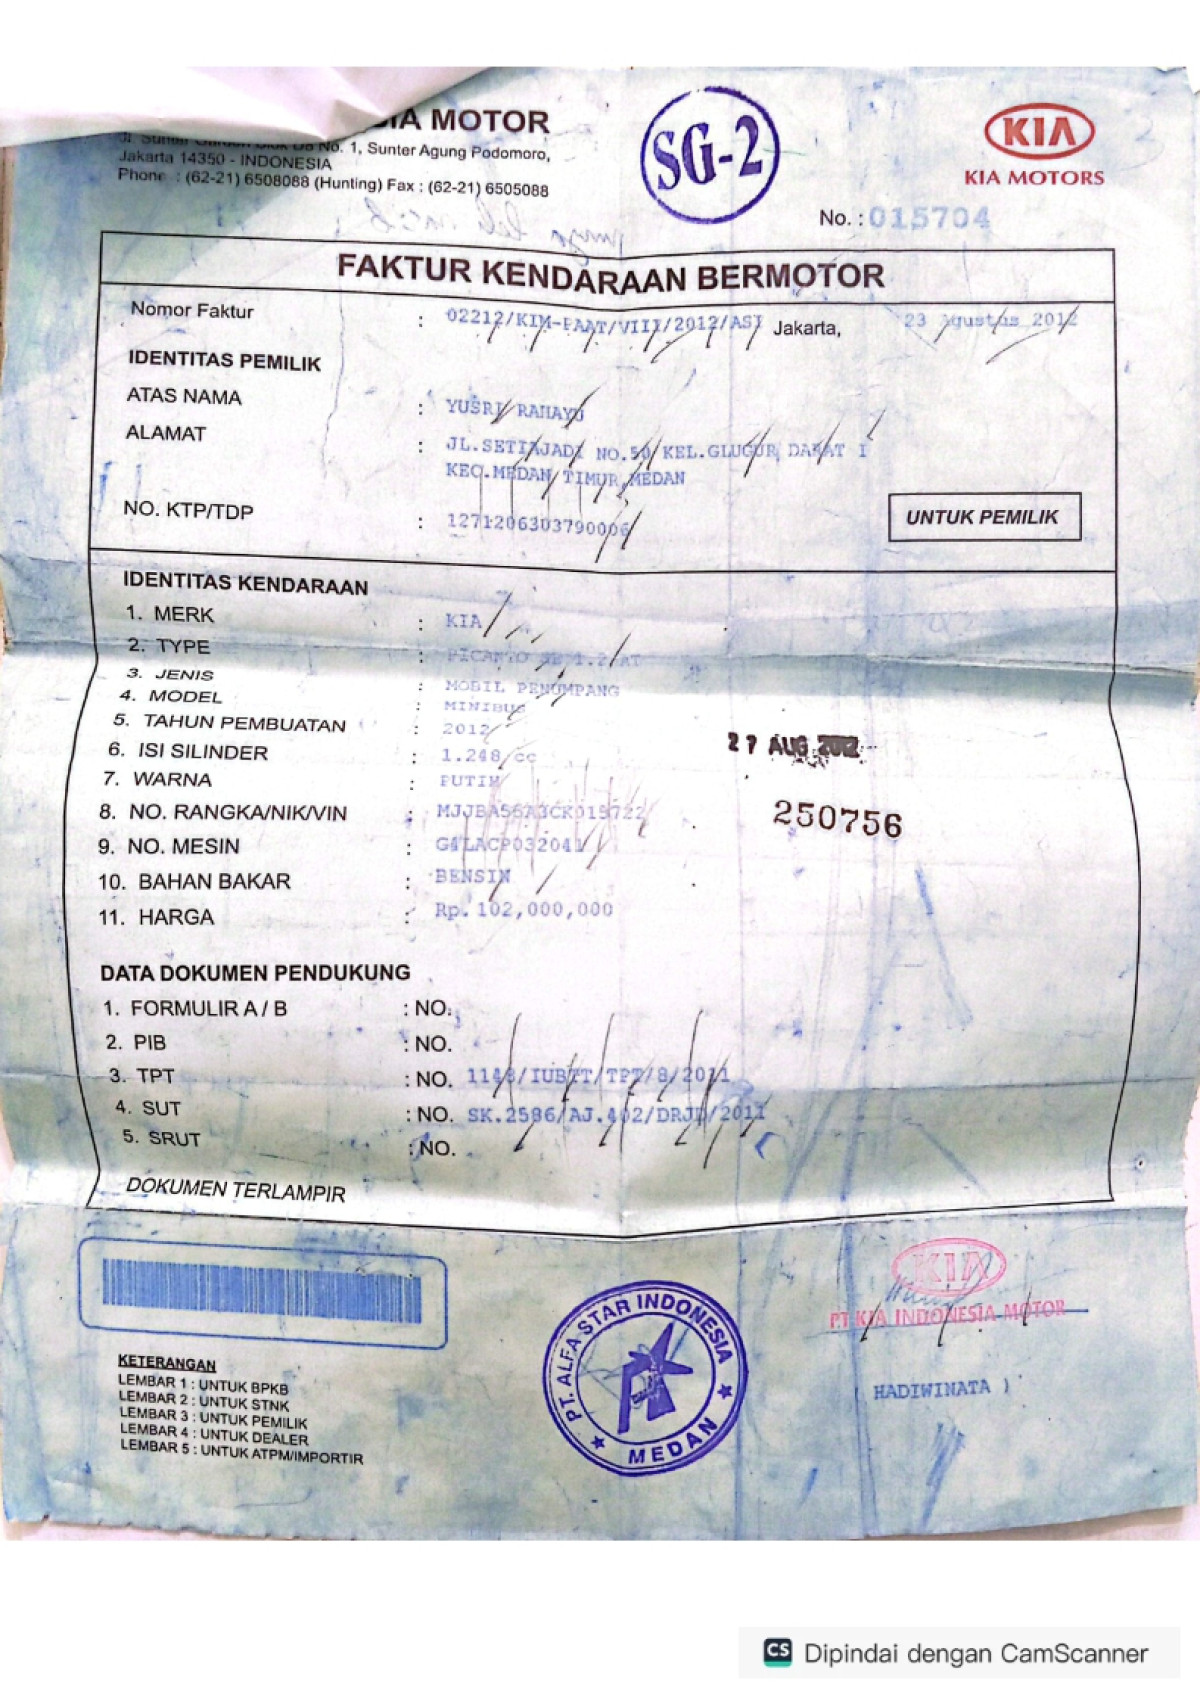 IA MOTOR
No. 1, Sunter Agung Podomoro,
Jakarta 14350 - INDONESIA
Phone : (62-21) 6508088 (Hunting) Fax : (62-21) 6505088
SG-2
KIA
KIA MOTORS
No. : 015704
FAKTUR KENDARAAN BERMOTOR
Nomor Faktur : 02212/KIM-PAAT/VIII/2012/ASI Jakarta, 23 Agustus 2012
IDENTITAS PEMILIK
ATAS NAMA : YUSRI RAHAYU
ALAMAT : JL.SETIAJADI NO.50 KEL.GLUGUR DARAT I
KEC.MEDAN TIMUR,MEDAN
NO. KTP/TDP : 1271206303790006
UNTUK PEMILIK
IDENTITAS KENDARAAN
1. MERK : KIA
2. TYPE : PICANTO SE 1.2 AT
3. JENIS : MOBIL PENUMPANG
4. MODEL : MINIBUS
5. TAHUN PEMBUATAN : 2012
6. ISI SILINDER : 1.248 cc
7. WARNA : PUTIH
8. NO. RANGKA/NIK/VIN : MJJBA56A3CK015722
9. NO. MESIN : G4LACP032041
10. BAHAN BAKAR : BENSIN
11. HARGA : Rp. 102,000,000
27 AUG 2012
250756
DATA DOKUMEN PENDUKUNG
1. FORMULIR A / B : NO.
2. PIB : NO.
3. TPT : NO. 1148/IUBTT/TPT/8/2011
4. SUT : NO. SK.2586/AJ.402/DRJD/2011
5. SRUT : NO.
DOKUMEN TERLAMPIR
KETERANGAN
LEMBAR 1 : UNTUK BPKB
LEMBAR 2 : UNTUK STNK
LEMBAR 3 : UNTUK PEMILIK
LEMBAR 4 : UNTUK DEALER
LEMBAR 5 : UNTUK ATPM/IMPORTIR
PT. ALFA STAR INDONESIA
MEDAN
KIA
PT KIA INDONESIA MOTOR
( HADIWINATA )
CS Dipindai dengan CamScanner